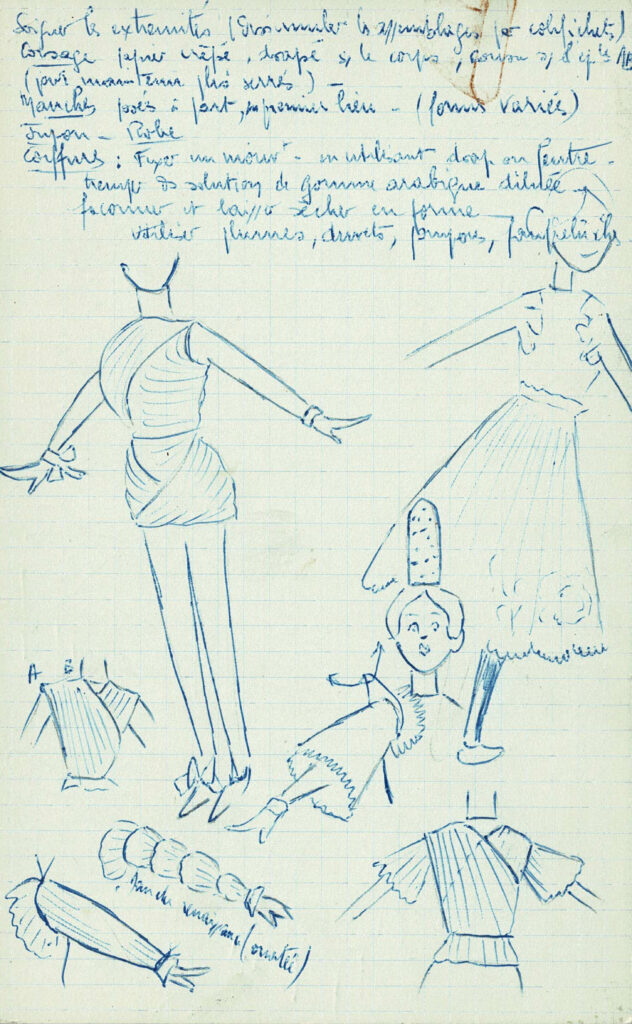 Soigner les extremités (Dissimuler les assemblages par colifichets)
Corsage papier crêpé, drapé s/ le corps, cousu s/ l'ép. les AB
(pour maintenir plis serrés)
Manches posés à part, en premier lieu - (formes variées)
Jupon - Robe
Coiffures : Fixer un mouvt - en utilisant drap ou feutre -
trempé ds solution de gomme arabique diluée -
façonner et laisser sécher en forme -
utiliser plumes, duvets, pompons, fanfreluches
A B
Manche renaissance (montée)